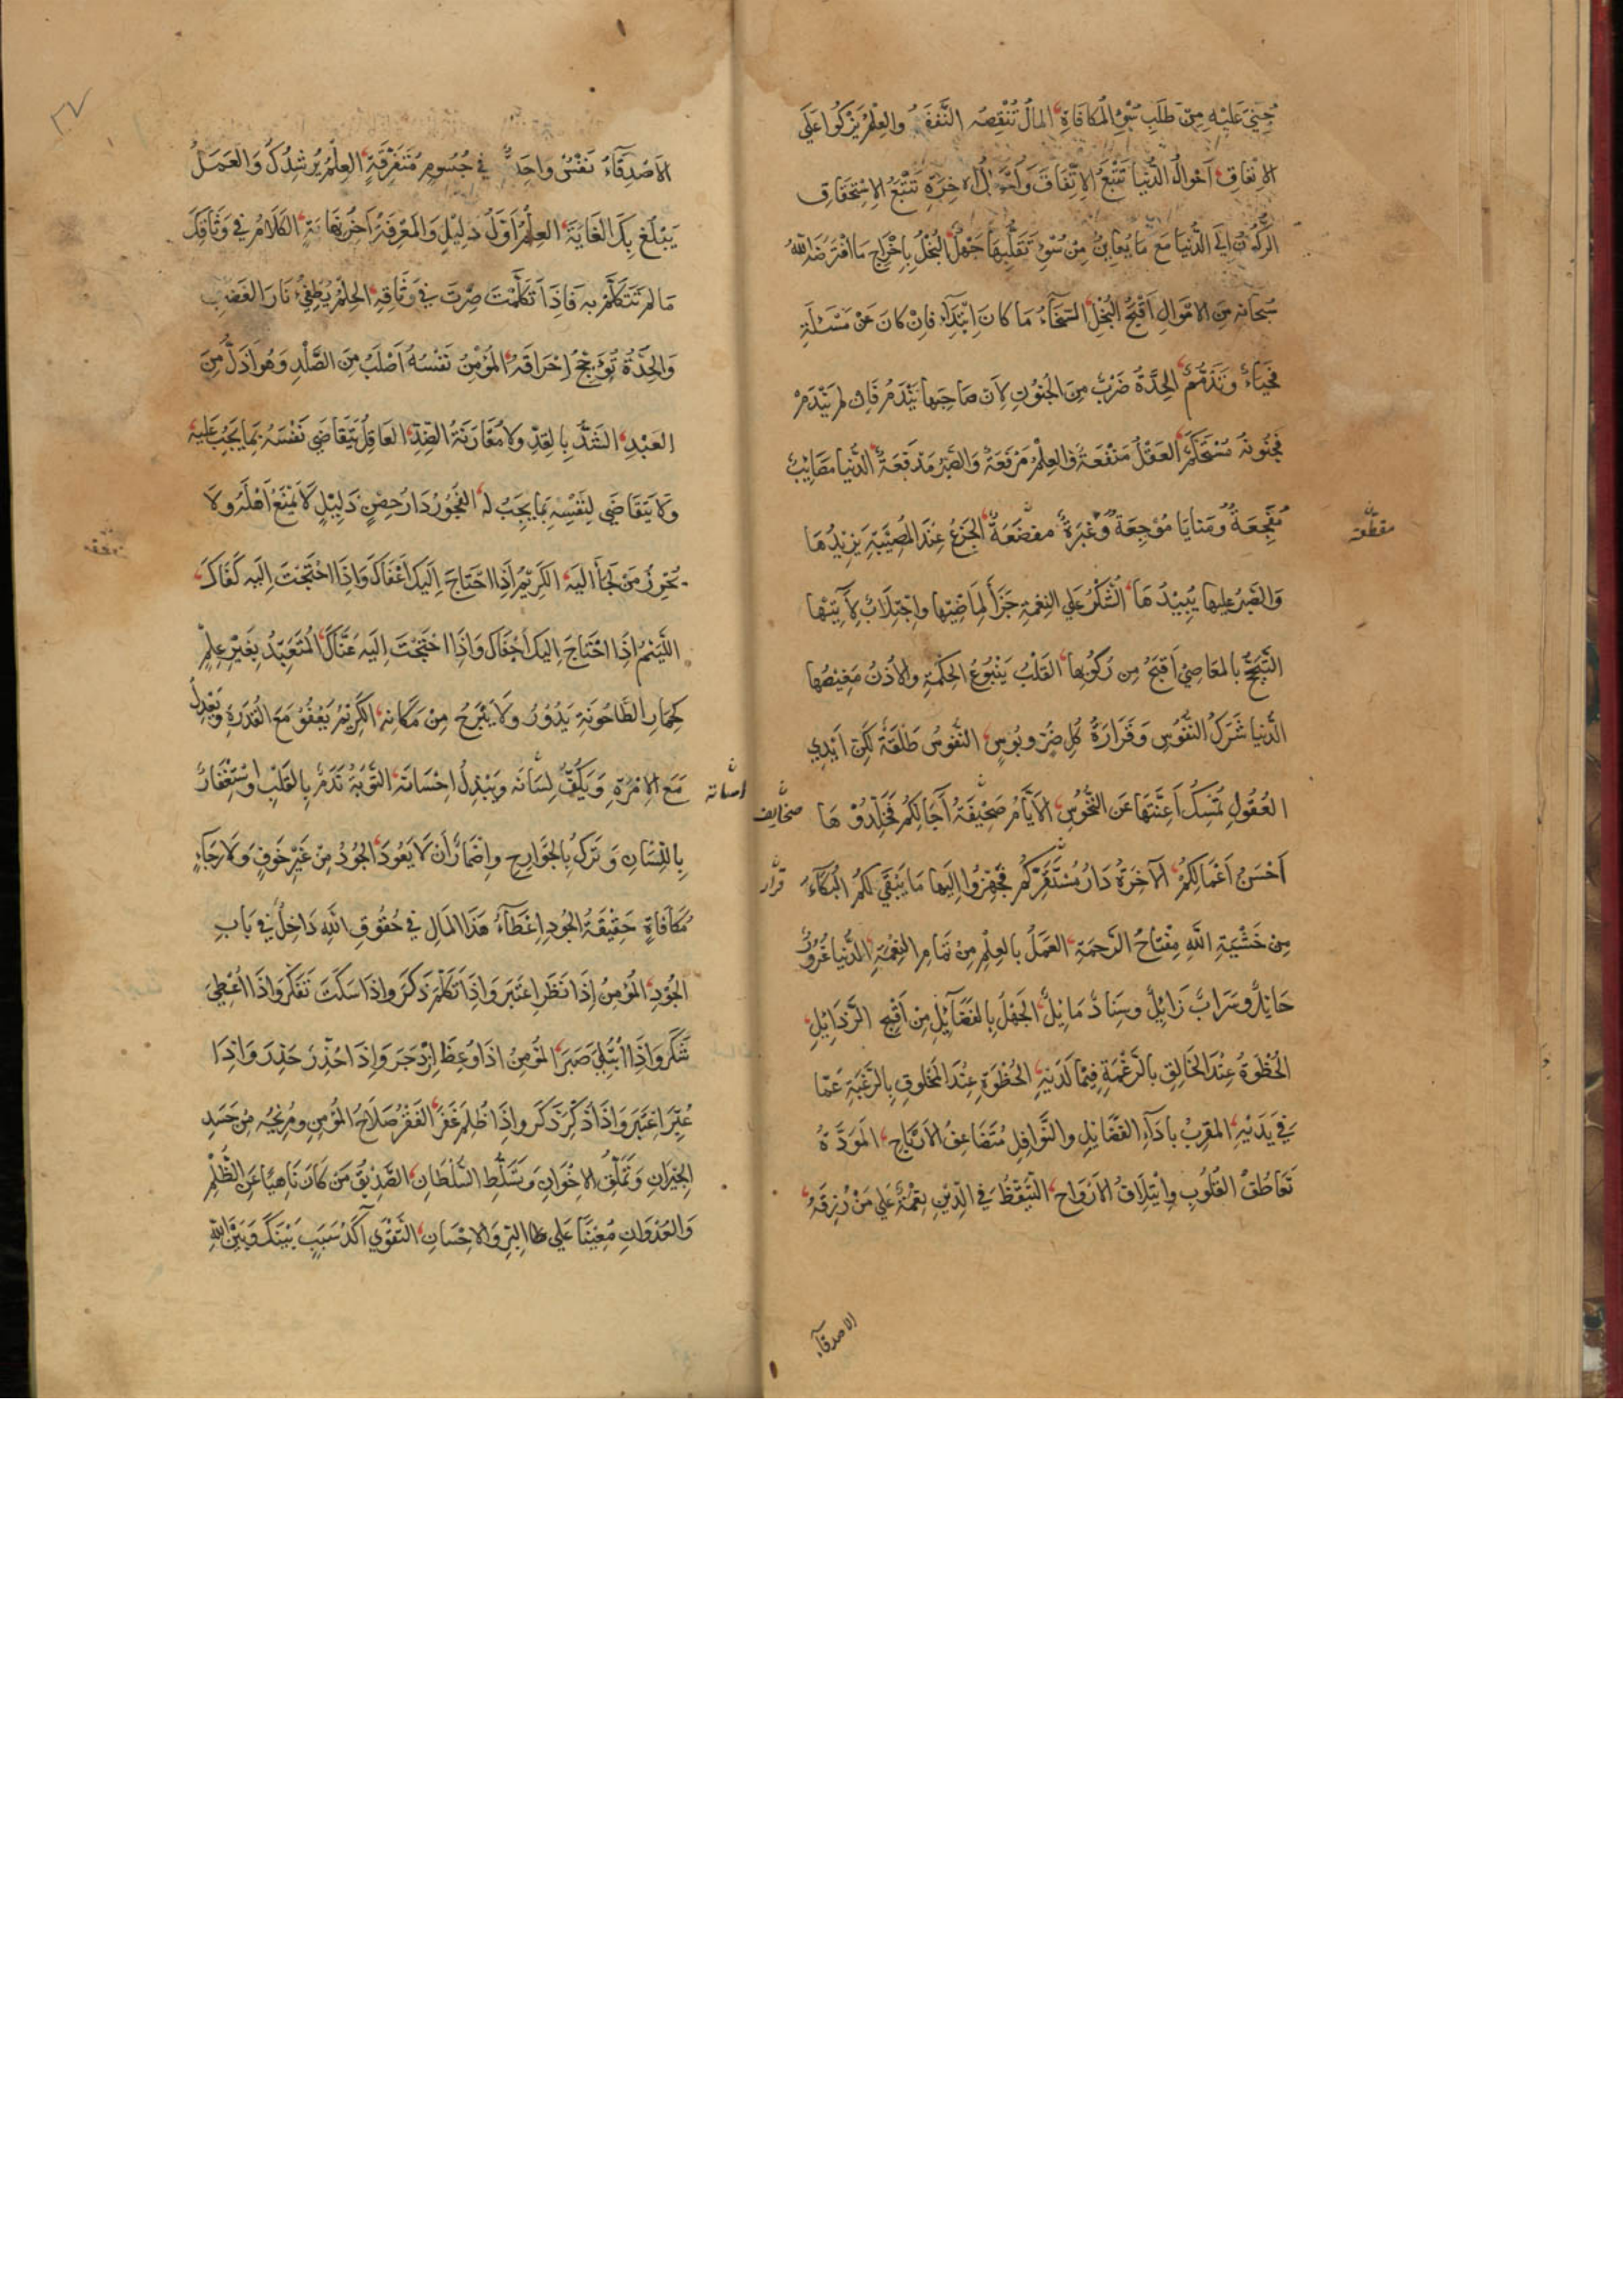 جُنِيَ عَلَيْهِ مِنْ طَلَبِ سُوءِ المُكَافَاةِ المَالُ تُنْقِصُهُ النَّفَقَةُ وَالعِلْمُ يَزْكُوا عَلَى
الاِنْفَاقِ اَحْوَالُ الدُّنْيَا تَتْبَعُ الاِتِّفَاقَ وَاَحْوَالُ الآخِرَةِ تَتْبَعُ الاِسْتِحْقَاقَ
الرُّكُونُ اِلَى الدُّنْيَا مَعَ مَا يُعَايِنُ مِنْ سُوْءِ تَقَلُّبِهَا جَهْلٌ البُخْلُ بِاِخْرَاجِ مَا افْتَرَضَهُ اللهُ
سُبْحَانَهُ مِنَ الاَمْوَالِ اَقْبَحُ البُخْلِ السَّخَاءُ مَا كَانَ اِبْتِدَآءً فَاِنْ كَانَ عَنْ مَسْئَلَةٍ
فَحَيَاءٌ وَتَذَمُّمٌ الحِدَّةُ ضَرْبٌ مِنَ الجُنُونِ لِاَنَّ صَاحِبَهَا يَنْدَمُ فَاِنْ لَمْ يَنْدَمْ
فَجُنُونُهُ مُسْتَحْكَمٌ العَقْلُ مَنْفَعَةٌ وَالعِلْمُ مَرْفَعَةٌ وَالصَّبْرُ مَدْفَعَةٌ الدُّنْيَا مَصَايِبُ
مُفَجِّعَةٌ وَمَنَايَا مُوْجِعَةٌ وَعِبَرَةٌ مفضعَةٌ الجَزَعُ عِنْدَ المُصِيْبَةِ يَزِيْدُهَا
مقطّعة
وَالصَّبْرُ عَلَيْهَا يُبِيْدُهَا الشُّكْرُ عَلَى النِعْمَةِ جَزَآءٌ لِمَاضِيْهَا وَاجْتِلَابٌ لِآتِيْهَا
التَّبَجُّحُ بِالمَعَاصِيْ اَقْبَحُ مِنْ رُكُوْبِهَا القَلْبُ يَنْبُوعُ الحِكْمَةِ وَالاُذُنُ مَغِيْضُهَا
الدُّنْيَا شَرَكُ النُّفُوسِ وَقَرَارَةُ كُلِّ ضُرٍّ وَبُوسٍ النُّفُوسُ طَلِقَةٌ لَكِنَّ اَيْدِي
العُقُولِ تُمْسِكُ اَعِنَّتَهَا عَنِ النُّحُوسِ الاَيَّامُ صَحِيْفَةُ اٰجَالِكُمْ فَخَلِّدُوْهَا
صحايف
اَحْسَنَ اَعْمَالِكُمْ الآخِرَةُ دَارُ مُسْتَقَرِّكُمْ فَجَهِّزُوا اِلَيْهَا مَا يَبْقَى لَكُمْ البُكَآءُ
قرار
مِنْ خَشْيَةِ اللهِ مِفْتَاحُ الرَّحْمَةِ العَمَلُ بِالعِلْمِ مِنْ تَمَامِ النِعْمَةِ الدُّنْيَا غُرُورٌ
حَايِلٌ وَسَرَابٌ زَايِلٌ وَسِنَادٌ مَايِلٌ الجَهْلُ بِالفَضَآيِلِ مِنْ اَقْبَحِ الرَّذَايِلِ
الحُظْوَةُ عِنْدَ الخَالِقِ بِالرَّغْبَةِ فِيْمَا لَدَيْهِ الحُظْوَةُ عِنْدَ المَخْلُوقِ بِالرَّغْبَةِ عَمَّا
فِي يَدَيْهِ المُقَرَّبُ بِاَدَآءِ الفَضَايِلِ وَالنَّوَافِلِ مُتَضَاعِفُ الاَرْبَاحِ المَوَدَّةُ
تَعَاطُفُ القُلُوبِ وَايْتِلَافُ الاَرْوَاحِ التَّيَقُّظُ فِي الدِّيْنِ نِعْمَةٌ عَلَى مَنْ رُزِقَهُ
الاصدقآء
٣٧
الاَصْدِقَآءُ نَفْسٌ وَاحِدَةٌ فِي جُسُومٍ مُتَفَرِّقَةٍ العِلْمُ يُرْشِدُكَ وَالعَمَلُ
يَبْلُغُ بِكَ الغَايَةَ العِلْمُ اَوَّلُ دَلِيْلٍ وَالمَعْرِفَةُ اٰخِرُ نِهَايَةٍ الكَلَامُ فِي وَثَاقِكَ
مَا لَمْ تَتَكَلَّمْ بِهِ فَاِذَا تَكَلَّمْتَ صِرْتَ فِي وَثَاقِهِ الحِلْمُ يُطْفِيءُ نَارَ الغَضَبِ
وَالحِدَّةُ تُوَجِّجُ اِحْرَاقَهُ المُؤْمِنُ نَفْسُهُ اَصْلَبُ مِنَ الصَّلْدِ وَهُوَ اَذَلُّ مِنَ
العَبْدِ الشَدُّ بِالقِدِّ وَلَا مُقَارَبَةُ الضِدِّ العَاقِلُ يَتَقَاضَى نَفْسَهُ بِمَا يَجِبُ عَلَيْهِ
وَلَا يَتَقَاضَى لِنَفْسِهِ بِمَا يَجِبُ لَهُ الفُجُورُ دَارُ حِصْنٍ ذَلِيْلٍ لَا يَمْنَعُ اَهْلَهُ وَلَا
يُحْرِزُ مَنْ لَجَأَ اِلَيْهِ الكَرِيْمُ اِذَا احْتَاجَ اِلَيْكَ اَعْفَاكَ وَاِذَا احْتَجْتَ اِلَيْهِ كَفَاكَ
اللَّئِيْمُ اِذَا احْتَاجَ اِلَيْكَ اَجْفَاكَ وَاِذَا احْتَجْتَ اِلَيْهِ عَنَّاكَ المُتَعَبِّدُ بِغَيْرِ عِلْمٍ
كَحِمَارِ الطَّاحُونَةِ يَدُوْرُ وَلَا يَبْرَحُ مِنْ مَكَانِهِ الكَرِيْمُ يَعْفُوْ مَعَ القُدْرَةِ وَيَعْدِلُ
مَعَ الاِمْرَةِ وَيَكُفُّ لِسَانَهُ وَيَبْذِلُ اِحْسَانَهُ التَّوْبَةُ نَدَمٌ بِالقَلْبِ وَاسْتِغْفَارٌ
بِاللِّسَانِ وَتَرْكٌ بِالجَوَارِحِ وَاِضْمَارُ اَنْ لَا يَعُودَ الجُوْدُ مِنْ غَيْرِ خَوْفٍ وَلَا رَجَاءِ
مُكَافَاةٍ حَقِيْقَةُ الجُودِ اِعْطَآءُ هَذَا المَالِ فِي حُقُوقِ اللهِ دَاخِلٌ فِي بَابِ
الجُوْدِ المُؤْمِنُ اِذَا نَظَرَ اعْتَبَرَ وَاِذَا تَكَلَّمَ ذَكَرَ وَاِذَا سَكَتَ تَفَكَّرَ وَاِذَا اُعْطِيَ
شَكَرَ وَاِذَا ابْتُلِيَ صَبَرَ المُؤْمِنُ اِذَا وُعِظَ اِزْدَجَرَ وَاِذَا حُذِّرَ حَذِرَ وَاِذَا
عُبِّرَ اعْتَبَرَ وَاِذَا ذُكِّرَ ذَكَرَ وَاِذَا ظُلِمَ غَفَرَ الفَقْرُ صَلَاحُ المُؤْمِنِ وَمُرِيْحُهُ مِنْ حَسَدِ
الجِيْرَانِ وَتَمَلُّقِ الاِخْوَانِ وَتَسَلُّطِ السُّلْطَانِ الصَّدِيْقُ مَنْ كَانَ نَاهِيًا عَنِ الظُّلْمِ
وَالعُدْوَانِ مُعِيْنًا عَلَى البِرِّ وَالاِحْسَانِ التَّقْوَى اٰكَدُ سَبَبٍ بَيْنَكَ وَبَيْنَ اللهِ